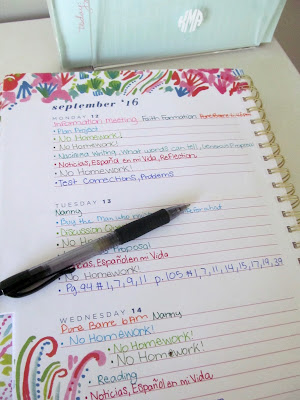 september '16
MONDAY 12
Information meeting, Faith Formation
• Plan Project
• No Homework!
• No Homework!
• Narrative Writing, What words can tell,
• Noticias, Español en mi Vida, Reflection
• No Homework!
• Test Corrections, Problems
TUESDAY 13
Nanny
• Buy the Man who
• Discussion
• No
Proposal
Noticias, Español en mi Vida
No Homework!
• Pg 94 # 1, 7, 9, 11 p. 105 # 1, 7, 11, 14, 15, 17, 19, 29
WEDNESDAY 14
Pure Barre 6am Nanny
• No Homework!
• No Homework!
• No Homework!
• Reading
• Noticias, Español en mi Vida